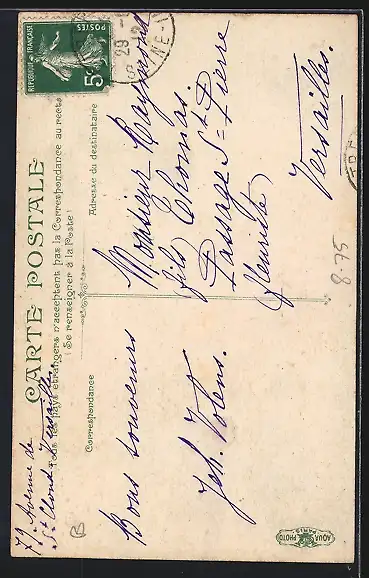 79 Avenue de
St Cloud Versailles.
CARTE POSTALE
Tous les pays étrangers n'acceptent pas la Correspondance au recto
(Se renseigner à la Poste)
Correspondance
Adresse du destinataire
Bons souvenirs
Joh. Volens.
Monsieur Raymond
fils Thomas.
Passage St= Pierre
fleuriste
Versailles.
REPUBLIQUE FRANÇAISE
POSTES
5c
29
8.75
AQUA PHOTO
PARIS